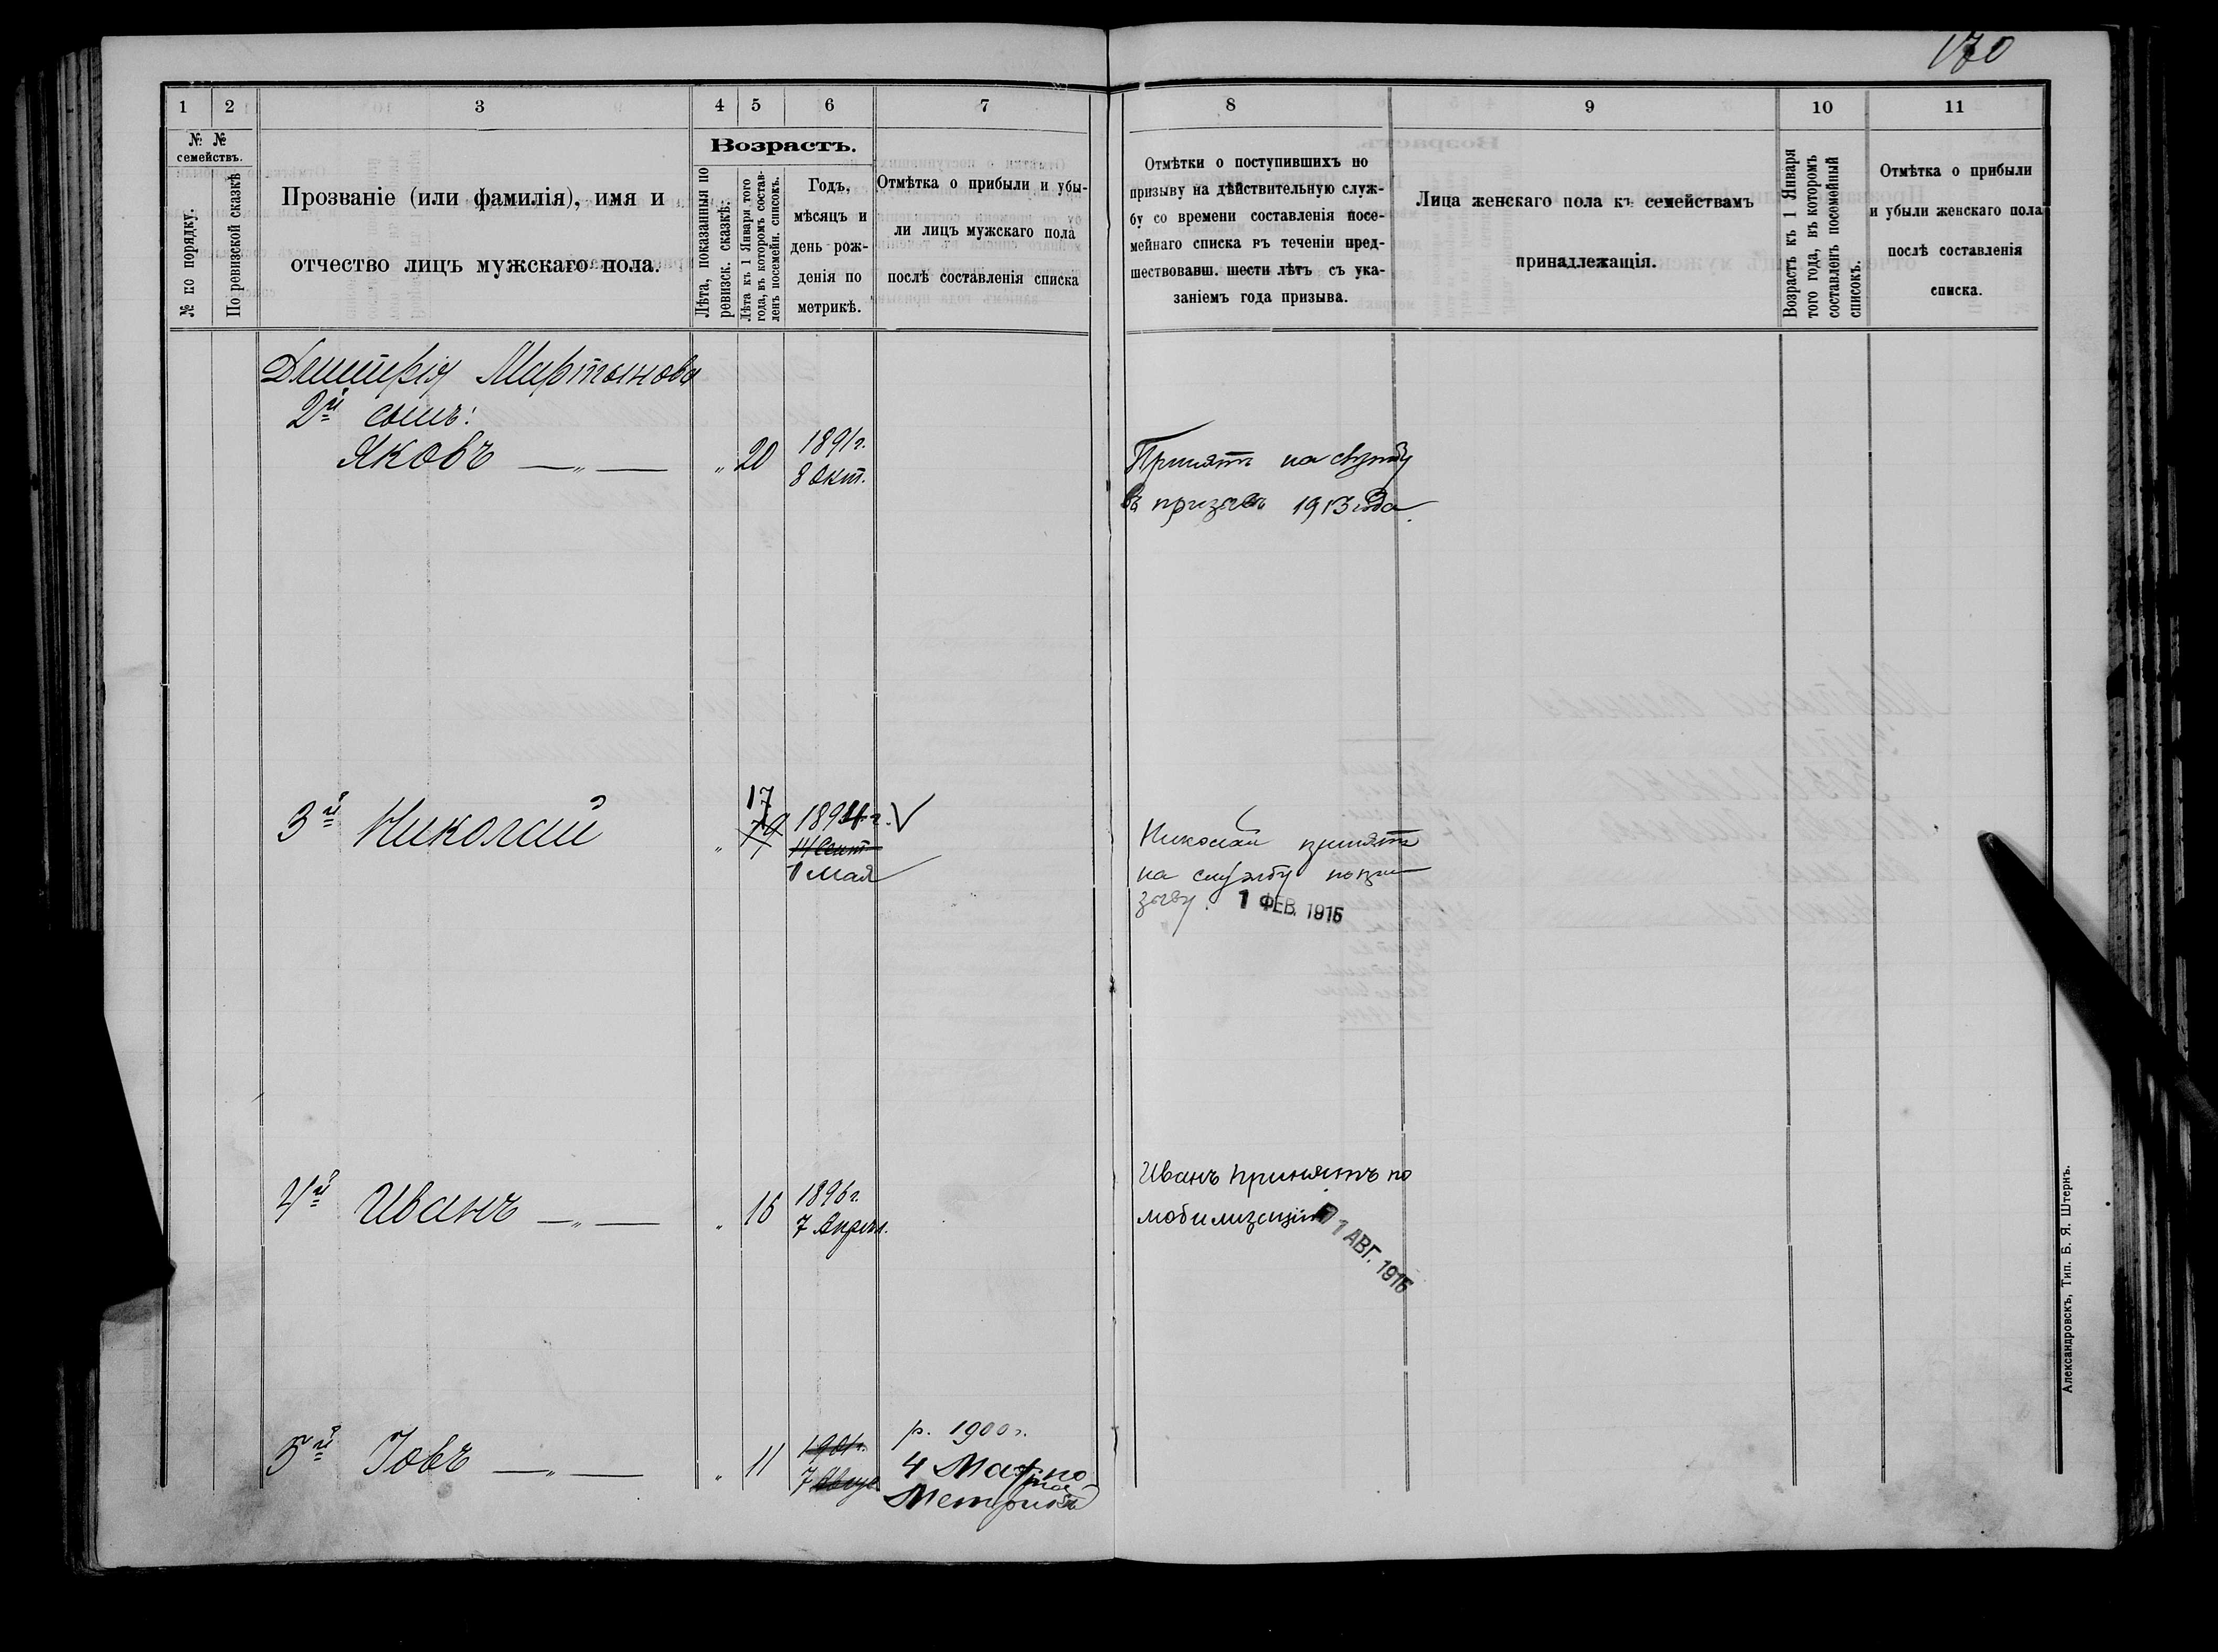 170
1 2 3 4 5 6 7 8 9 10 11
№ №
семействъ.
№ по порядку.
По ревизской сказкѣ
Прозваніе (или фамилія), имя и
отчество лицъ мужскаго пола.
Возрастъ.
Лѣта, показанныя по
ревизск. сказкѣ.
Лѣта къ 1 Января того
года, въ которомъ состав-
ленъ посемейн. списокъ.
Годъ,
мѣсяцъ и
день рож-
денія по
метрикѣ.
Отмѣтка о прибыли и убы-
ли лицъ мужскаго пола
послѣ составленія списка
Отмѣтки о поступившихъ по
призыву на дѣйствительную служ-
бу со времени составленія посе-
мейнаго списка въ теченіи пред-
шествовавш. шести лѣтъ съ ука-
заніемъ года призыва.
Лица женскаго пола къ семействамъ
принадлежащія.
Возрастъ къ 1 Января
того года, въ которомъ
составленъ посемейный
списокъ.
Отмѣтка о прибыли
и убыли женскаго пола
послѣ составленія
списка.
Дмитрія Мартынова
2й сынъ:
Яковъ — „ — „ 20 1891г.
8 Окт.
Принятъ на службу
въ призывъ 1913 года.
17
3й Николай „ 19 1894г. V
14 Сент.
1 Мая
Николай принятъ
на службу по при
зыву. 1 ФЕВ. 1915
4й Иванъ — „ — „ 15 1896г.
7 Апрѣл.
Иванъ принятъ по
мобилизаціи 1 АВГ. 1915
5й Іовъ — „ — „ 11 1901г.
7
р. 1900г.
4 Мая по
Александровскъ, Тип. Б. Я. Штернъ.